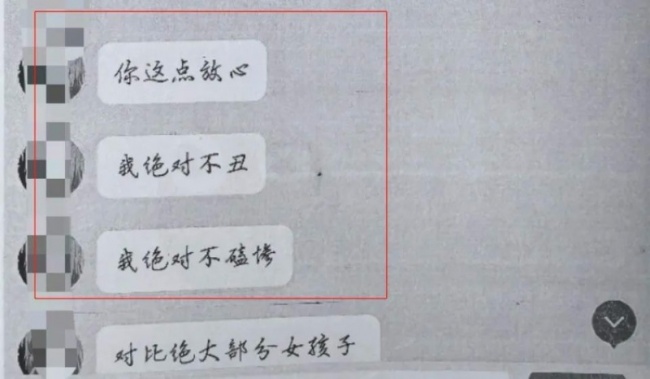 你这点放心
我绝对不丑
我绝对不磕惨
对比绝大部分女孩子